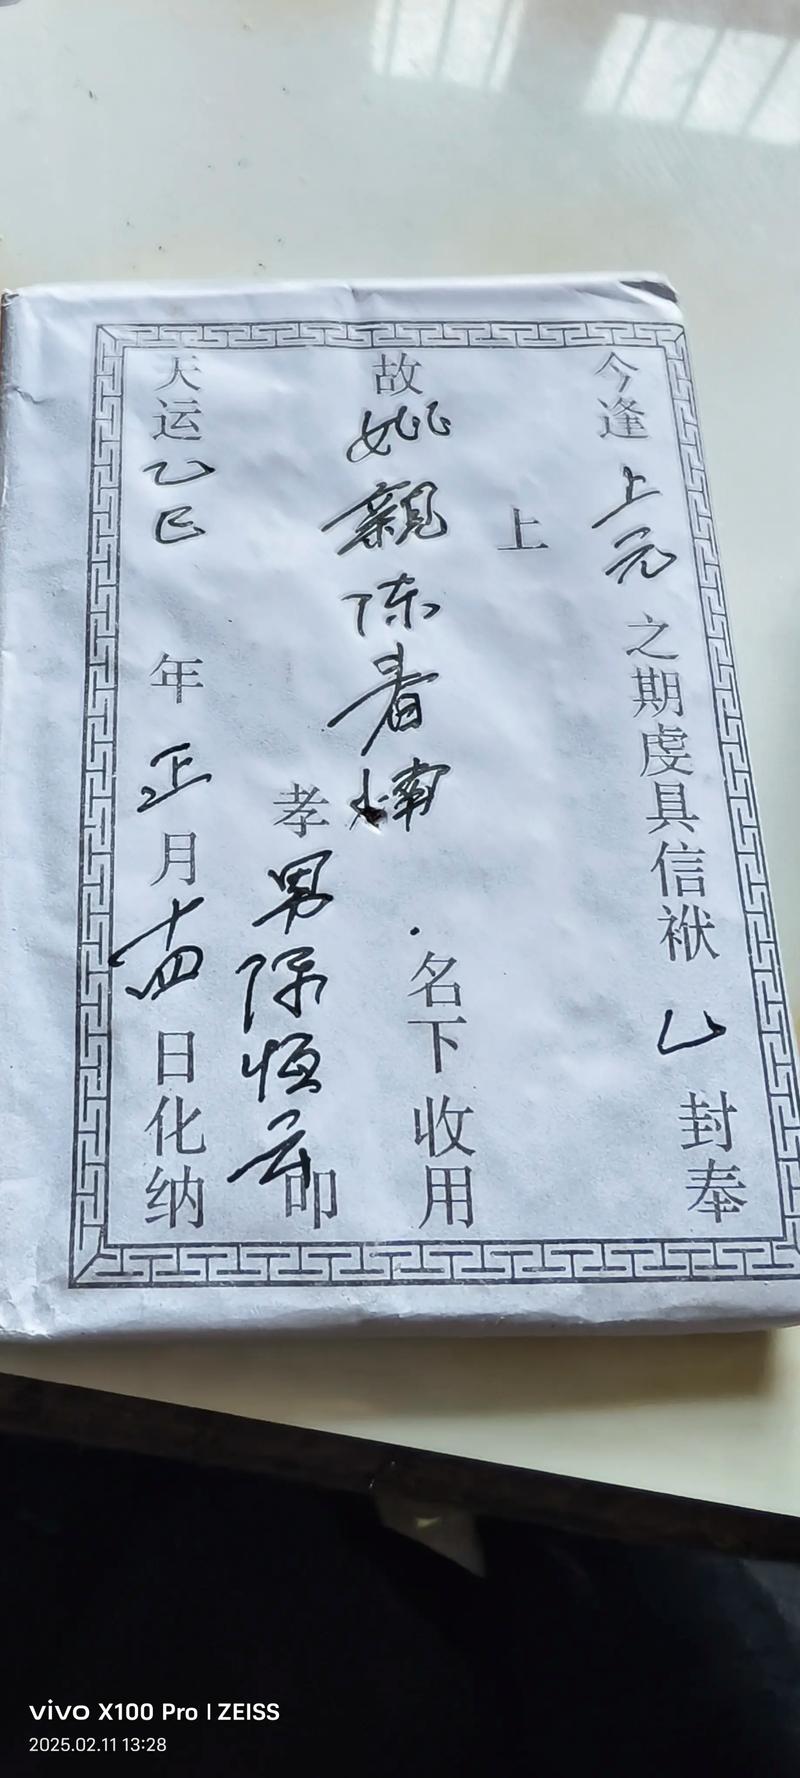 今逢上元之期虔具信袱乙封奉
上
故姚親陈着 名下收用
孝男陈恒云叩
天运乙巳年正月十四日化纳
vivo X100 Pro | ZEISS
2025.02.11 13:28